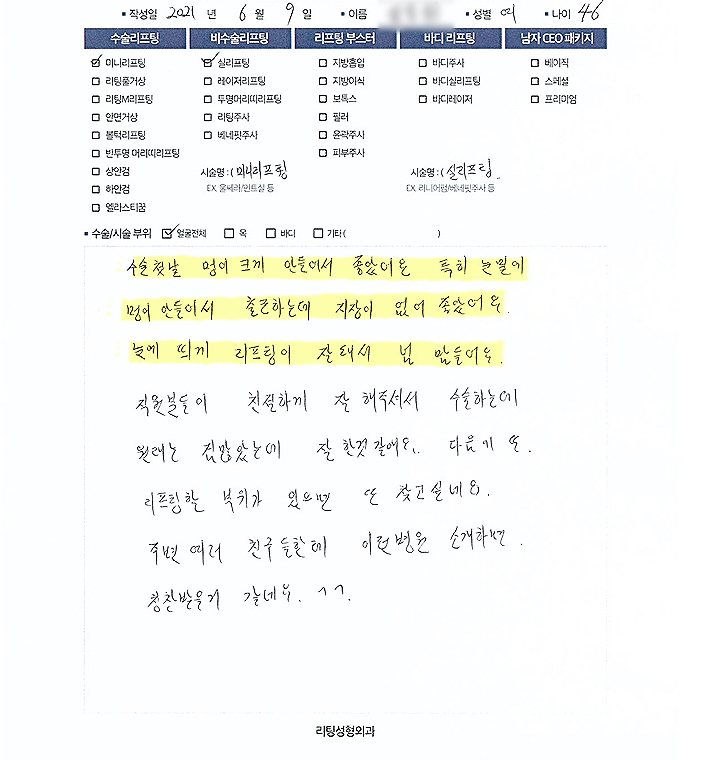 ▪ 작성일 2021 년 6 월 9 일 ▪ 이름 ▪ 성별 여 ▪ 나이 46
수술리프팅 비수술리프팅 리프팅 부스터 바디 리프팅 남자 CEO 패키지
미니리프팅 실리프팅 지방흡입 바디주사 베이직
리팅풀거상 레이저리프팅 지방이식 바디실리프팅 스페셜
리팅M리프팅 투명머리띠리프팅 보톡스 바디레이저 프리미엄
안면거상 리팅주사 필러
볼턱리프팅 베네핏주사 윤곽주사
반투명 머리띠리프팅 피부주사
상안검 시술명 : ( 미니리프팅 시술명 : ( 실리프팅
하안검 EX. 울쎄라/민트실 등 EX. 리니어펌/베네핏주사 등
엘리스티꿈
▪ 수술/시술 부위 얼굴전체 목 바디 기타( )
수술첫날 멍이 크게 안들어서 좋았어요 특히 눈밑에
멍이 안들어서 출근하는데 지장이 없어 좋았어요.
눈에 띄게 리프팅이 잘돼서 넘 맘들어요.
직원분들이 친절하게 잘 해주셔서 수술하는데
원래는 겁많았는데 잘 한것 같애요.. 다음에 또.
리프팅할 부위가 있으면 또 찾고싶네요.
주변 여러 친구들한테 이런병원 소개하면.
칭찬받을거 같네요. ^^.
리팅성형외과